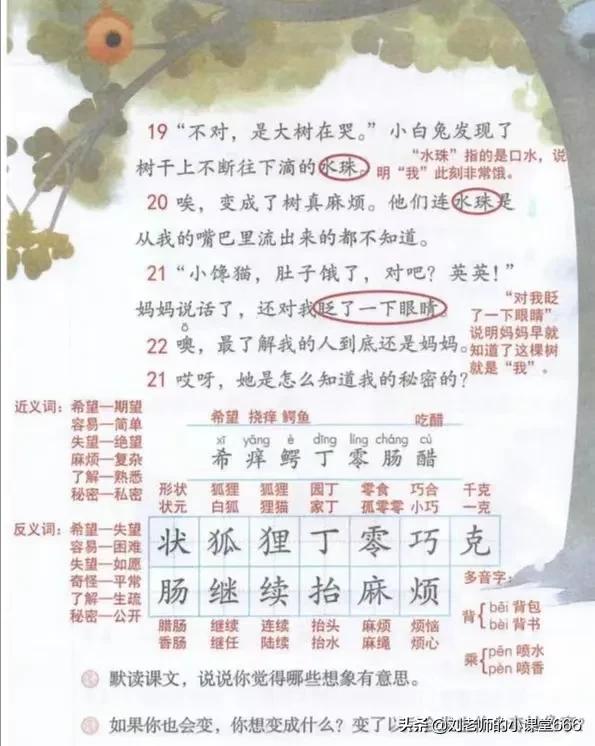 19 “不对，是大树在哭。”小白兔发现了
树干上不断往下滴的水珠。
“水珠”指的是口水，说
明“我”此刻非常饿。
20 唉，变成了树真麻烦。他们连水珠是
从我的嘴巴里流出来的都不知道。
21 “小馋猫，肚子饿了，对吧？英英！”
妈妈说话了，还对我眨了一下眼睛。
“对我眨
了一下眼睛”
说明妈妈早就
知道了这棵树
就是“我”。
ǒ
22 噢，最了解我的人到底还是妈妈。
21 哎呀，她是怎么知道我的秘密的？
近义词：希望—期望
容易—简单
失望—绝望
麻烦—复杂
了解—熟悉
秘密—私密
希望 挠痒 鳄鱼 吃醋
xī yǎng è dīng líng cháng cù
希 痒 鳄 丁 零 肠 醋
形状 狐狸 狐狸 园丁 零食 巧合 千克
状元 白狐 狸猫 家丁 孤零零 小巧 一克
反义词：希望—失望
容易—困难
失望—如愿
奇怪—平常
了解—生疏
秘密—公开
状 狐 狸 丁 零 巧 克
肠 继 续 抬 麻 烦
腊肠 继续 连续 抬头 麻烦 烦恼
香肠 继任 陆续 抬水 麻绳 烦心
多音字：
背 bēi 背包
bèi 背书
乘 pēn 喷水
pèn 喷香
默读课文，说说你觉得哪些想象有意思。
如果你也会变，你想变成什么？变了以
头条@刘老师的小课堂666